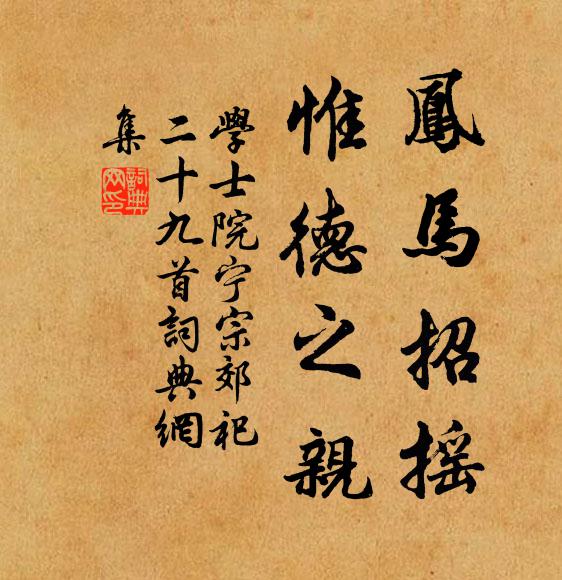 鳳馬招摇
惟德之親
學士院宁宗郊祀
二十九首詞典網
集
詞典
网印